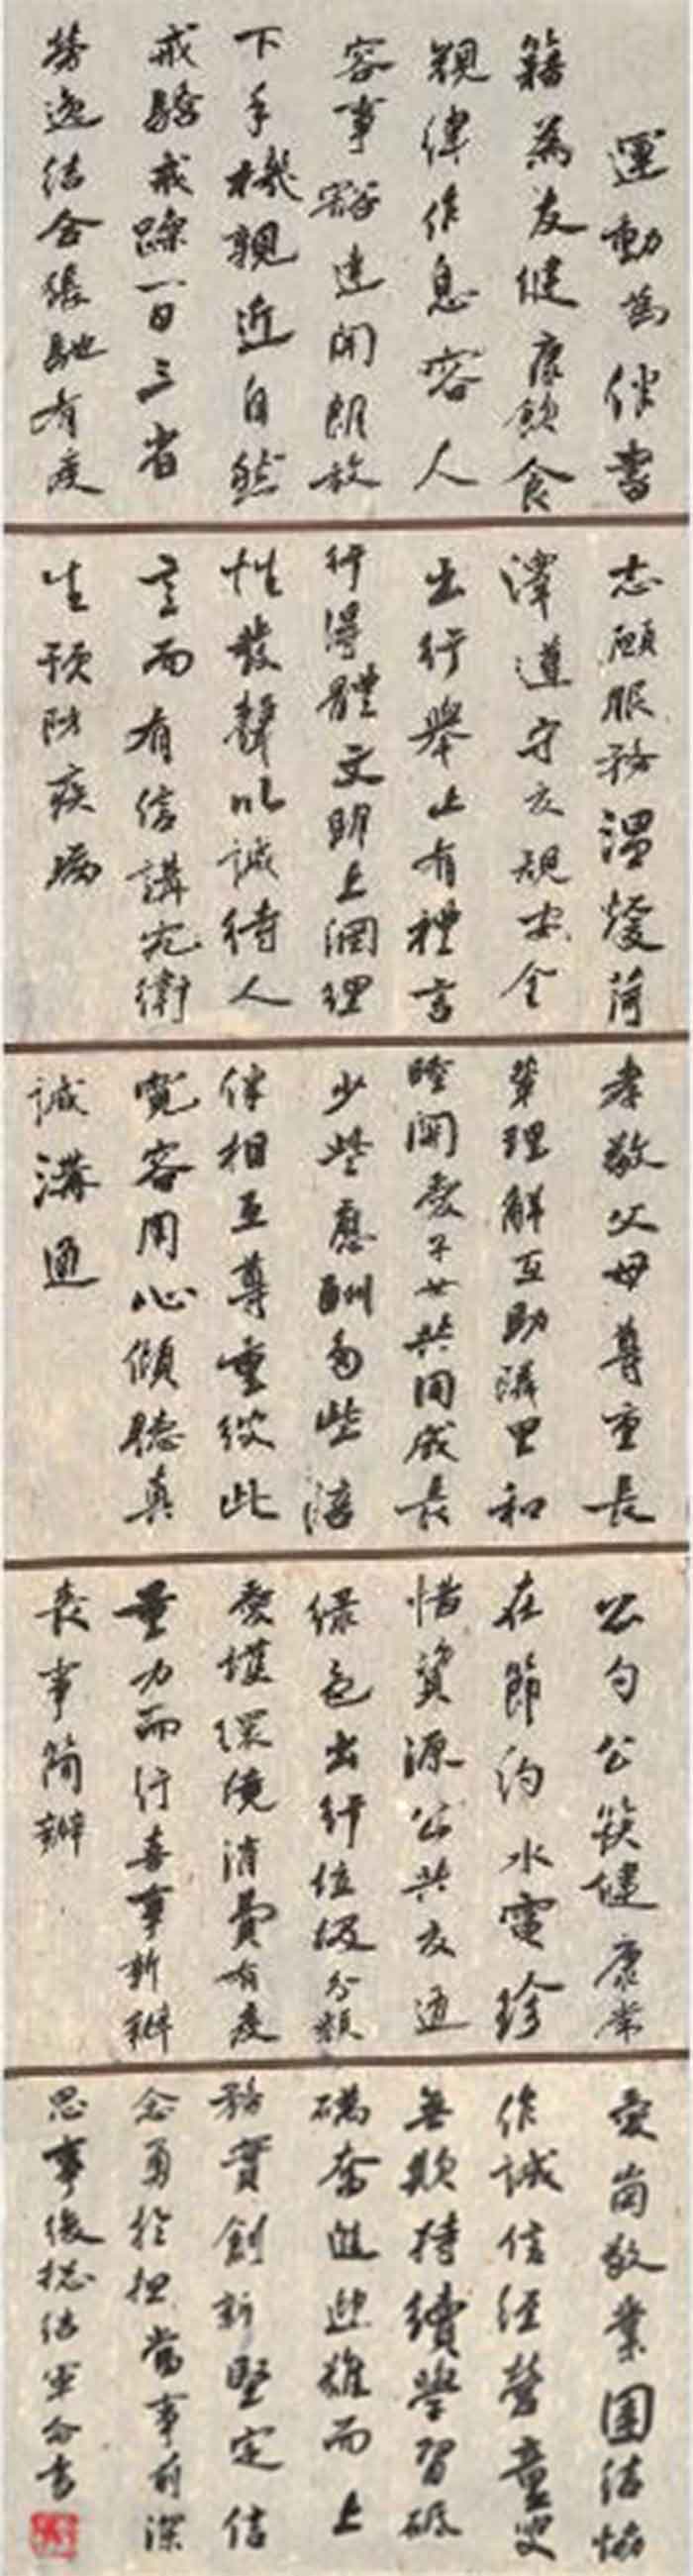 運動為伴書
籍為友健康飲食
規律作息容人
容事豁達開朗放
下手機親近自然
戒驕戒躁一日三省
勞逸結合張馳有度
志願服務温煖菏
澤遵守交規安全
出行舉止有禮言
行得體文明上網理
性發聲以誠待人
言而有信講究衛
生預防疾病
孝敬父母尊重長
輩理解互助鄰里和
睦關愛子女共同成長
少些應酬多些陪
伴相互尊重彼此
寬容用心傾聽真
誠溝通
公勺公筷健康常
在節約水電珍
惜資源公共交通
緑色出行垃圾分類
愛護環境消費有度
量力而行喜事新辦
喪事简辦
愛崗敬業團結協
作誠信經營童叟
無欺持續學習砥
礪奮進迎難而上
務實創新堅定信
念勇於担當事前深
思事後總結書